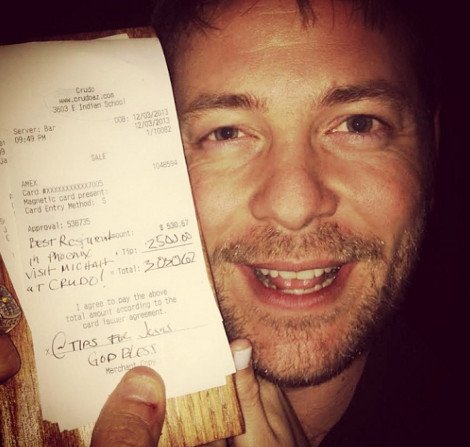 Crudo
www.crudoaz.com
3603 E Indian School
DOB: 12/03/2013
Server: Bar 12/03/2013
09:49 PM 1/10082
SALE
1048594
AMEX
Card #XXXXXXXXXXX7005
Magnetic card present:
Card Entry Method: S
Approval: 536735
Amount: $ 530.67
+ Tip: 2500.00
= Total: 3030.67
BEST RESTAURANT
IN PHOENIX
VISIT MICHAEL
AT CRUDO!
I agree to pay the above
total amount according to the
card issuer agreement.
x @TIPS FOR JESUS
GOD BLESS
Merchant Copy